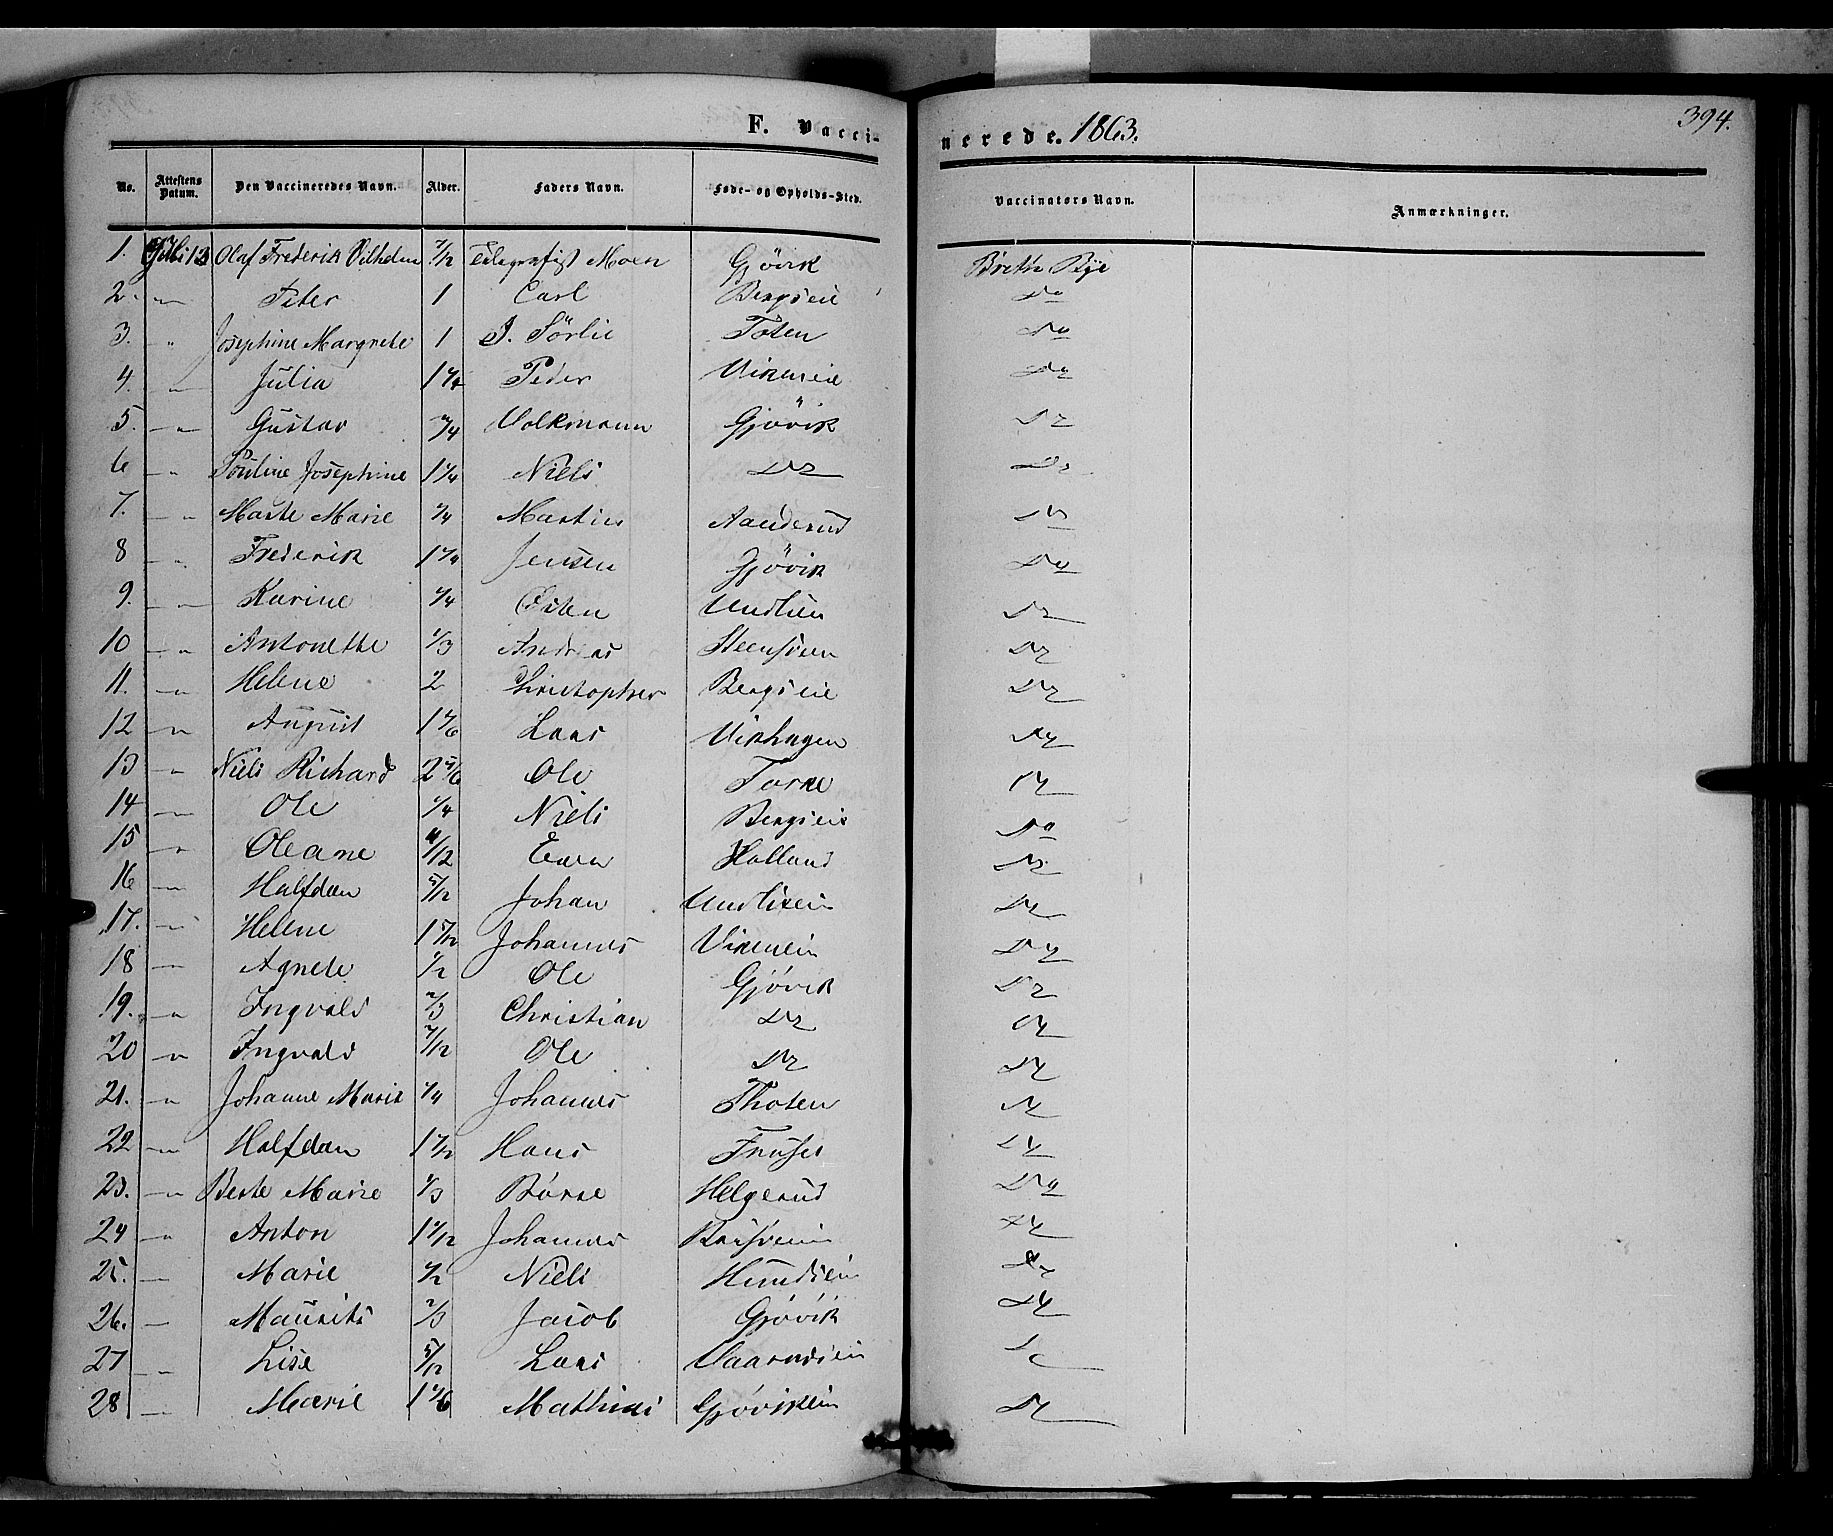 394.
F. Vaccinerede. 1863.
No. Attestens Datum. Den Vaccineredes Navn. Alder. Faders Navn. Føde- og Opholds-Sted. Vaccinators Navn. Anmærkninger.
1. Juli 13 Olaf Frederik Vilhelm 7/12 Telegrafist Moen Gjövik Breth Bye
2. -"- Peter 1 Carl Bergseie Do
3. " Josephine Margrete 1 J. Sörlie Toten Do
4. -"- Julia 1 1/4 Peder Vikseie Do
5. -"- Gustav 3/4 Volkmann Gjövik Do
6 " Pouline Josephine 1 1/4 Niels Do Do
7. -"- Marte Marie 1/4 Martin Aanderud Do
8 " Frederik 1 1/4 Jensen Gjövik Do
9. -"- Karine 1/4 Osten Do
10 -"- Antonette 1/3 Andreas Do
11. -"- Helene 2 Christopher Bergseie Do
12 -"- August 1 1/6 Lars Vikhagen Do
13 -"- Niels Richard 2 5/6 Ole Do
14 -"- Ole 1/4 Niels Bergseie Do
15 -"- Oleane 4/12 Even Holland Do
16 -"- Halfdan 5/12 Johan Do
17. -"- Helene 1 5/12 Johannes Do
18 -"- Agnete 1/2 Ole Gjövik Do
19. -"- Ingvald 2/3 Christian Do Do
20 -"- Ingvald 7/12 Ole Do Do
21. -"- Johanne Marie 1/4 Johannes Thoten Do
22 -"- Halfdan 1 1/2 Hans Do
23. -"- Berte Marie 1/3 Börre Helgerud Do
24 -"- Anton 1 1/12 Johannes Do
25. -"- Marie 1/2 Niels Do
26. -"- Maurits 2/3 Jacob Gjövik Do
27 -"- Lise 5/12 Lars Do
28 -"- Marie 1 1/6 Mathias Gjövikein Do